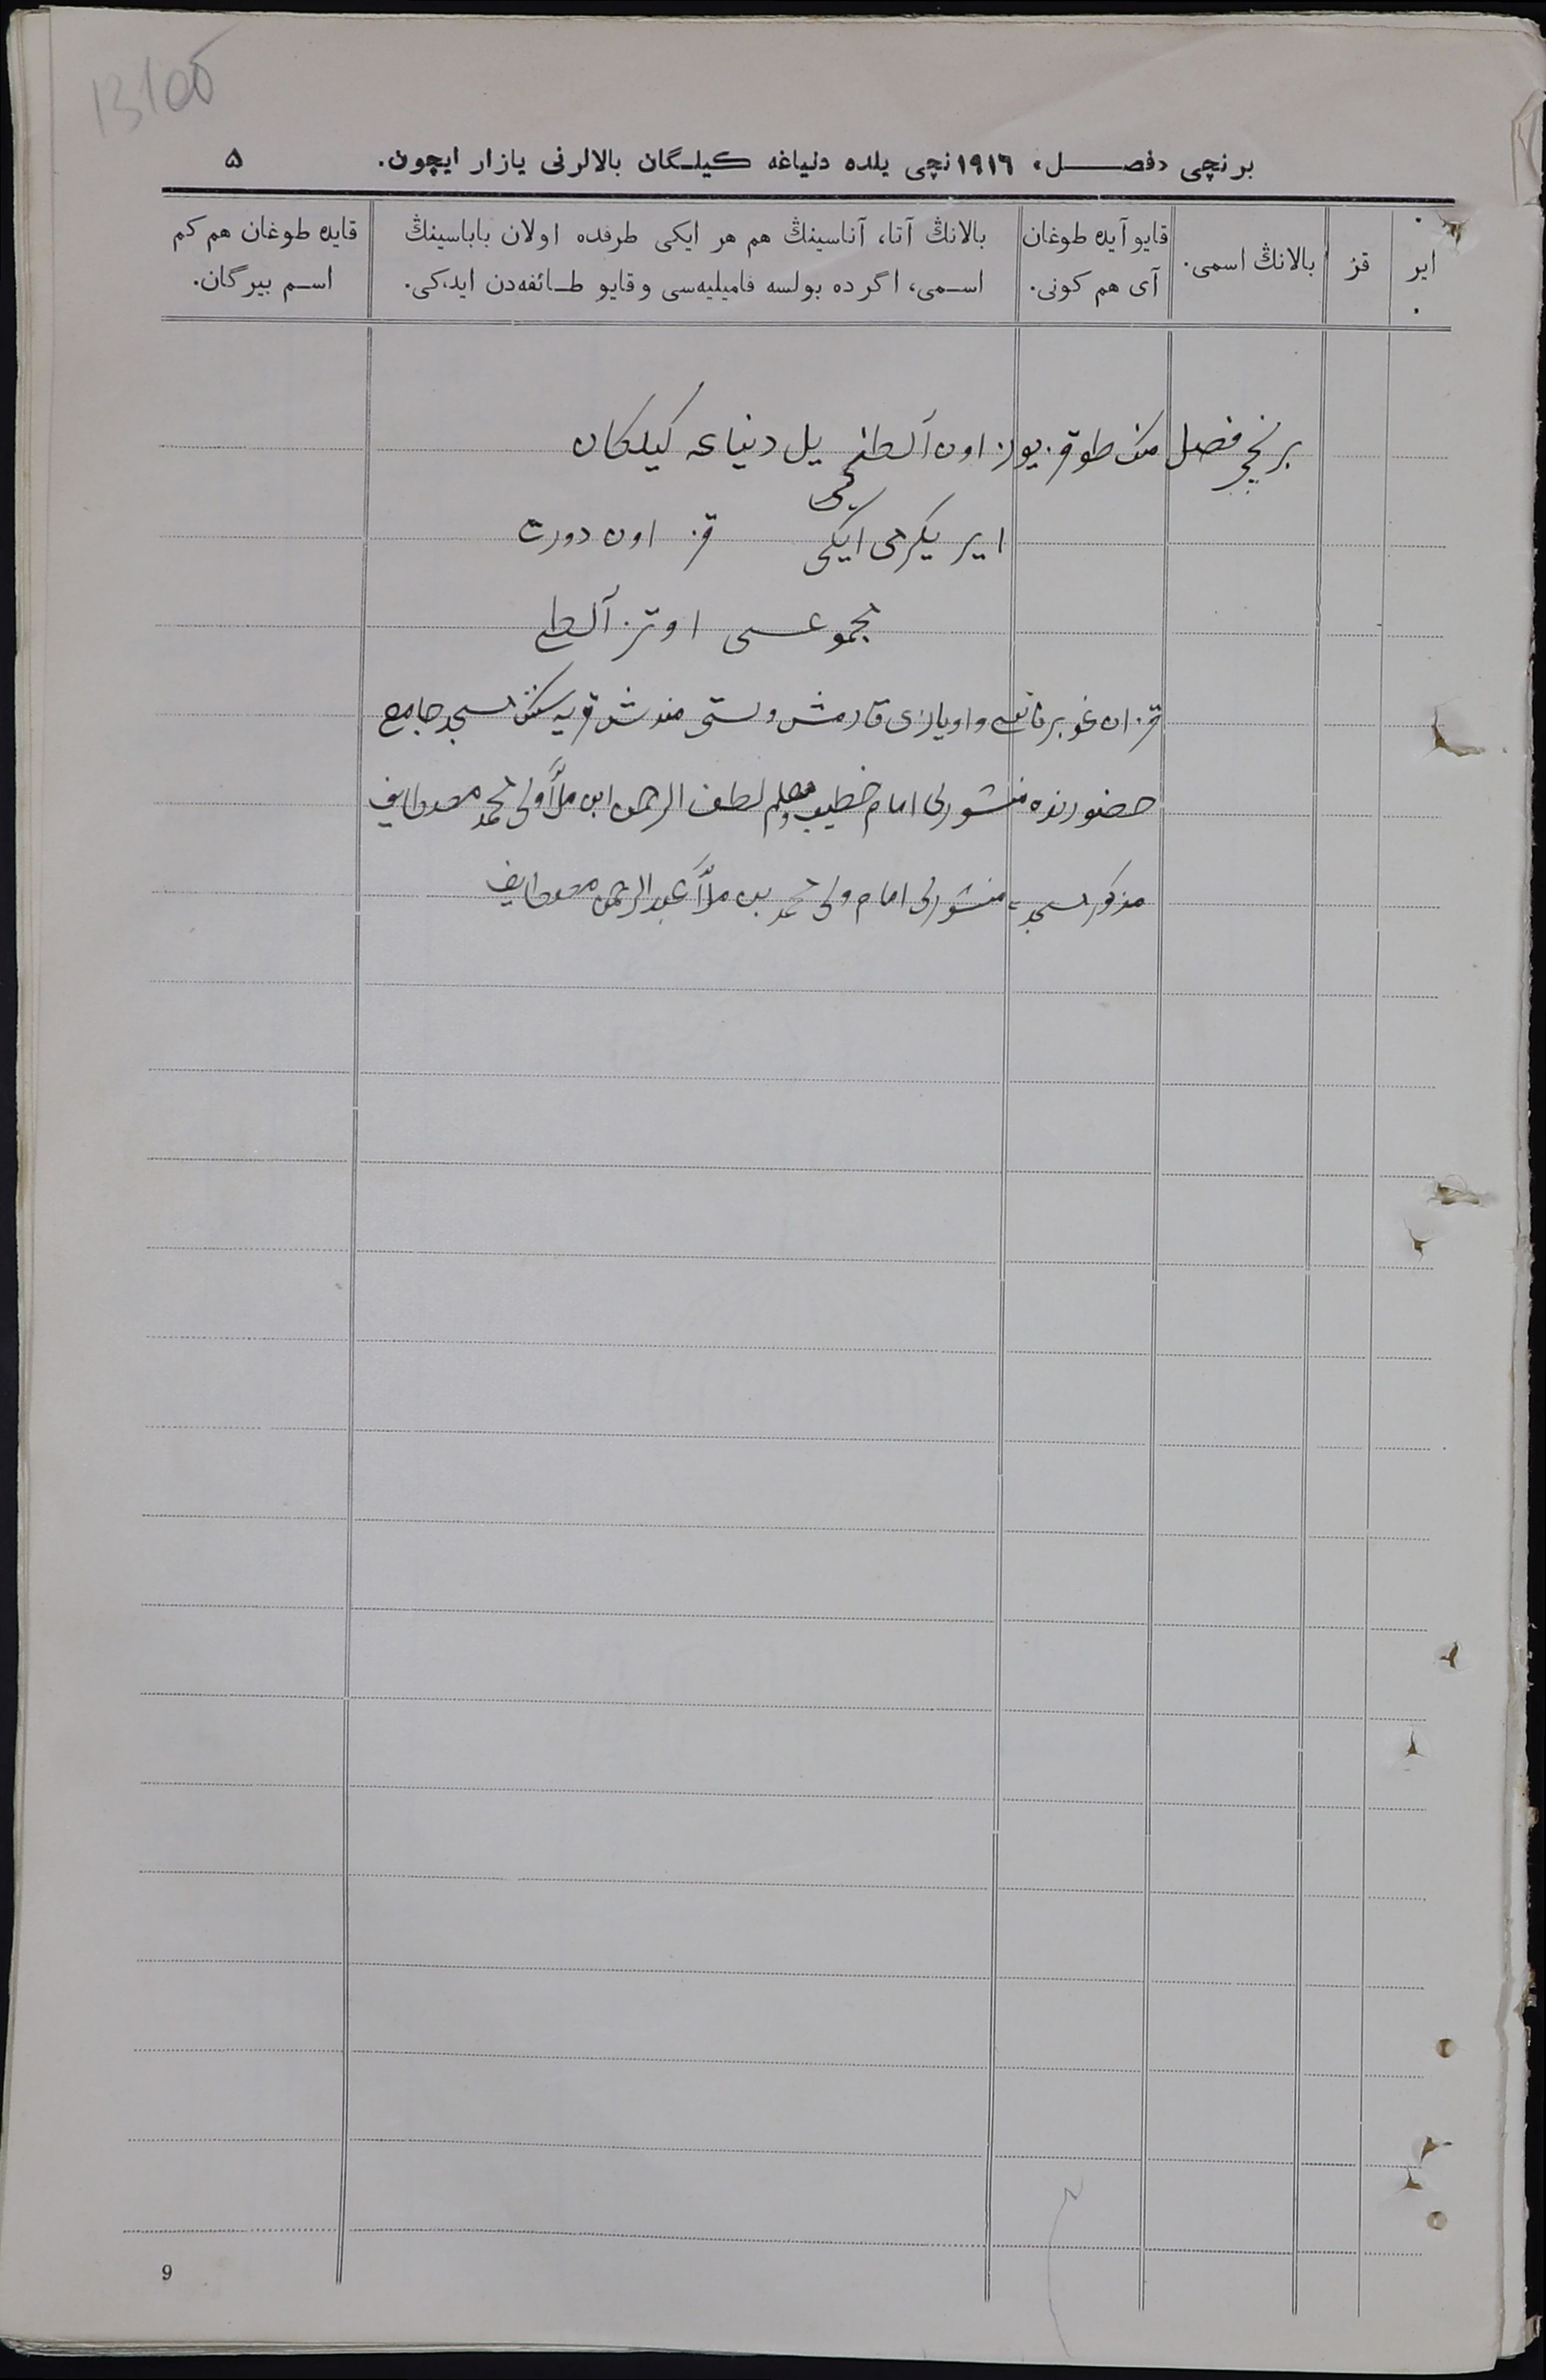 13100
برنچی «فصل» ١٩١٦نچی یلده دنیاغه کیلگان بالالرنی یازار ایچون. ۵
ایر
قز
بالانڭ اسمی.
قایو آیده طوغان
آی هم کونی.
بالانڭ آتا، آناسینڭ هم هر ایکی طرفده اولان باباسینڭ
اسمی، اگرده بولسه فامیلیه‌سی و قایو طائفه‌دن ایدکی.
قایده طوغان هم کم
اسم بیرگان.
برنچی فصل منک طوقز یوز اون آلطنچی یل دنیاغه کیلکان
ایر یکرمی ایکی قز اون دورت
مجموعسی اوتز آلطی
قزان غوبرناسی اویازی وستی قریه سنڭ مسجد جامع
حضورنده منشورلی امام خطیب و معلم لطف الرحمن ابن ملا ولی محمد
مذکور مسجده منشورلی امام ولی محمد بن ملا عبدالرحمن
9